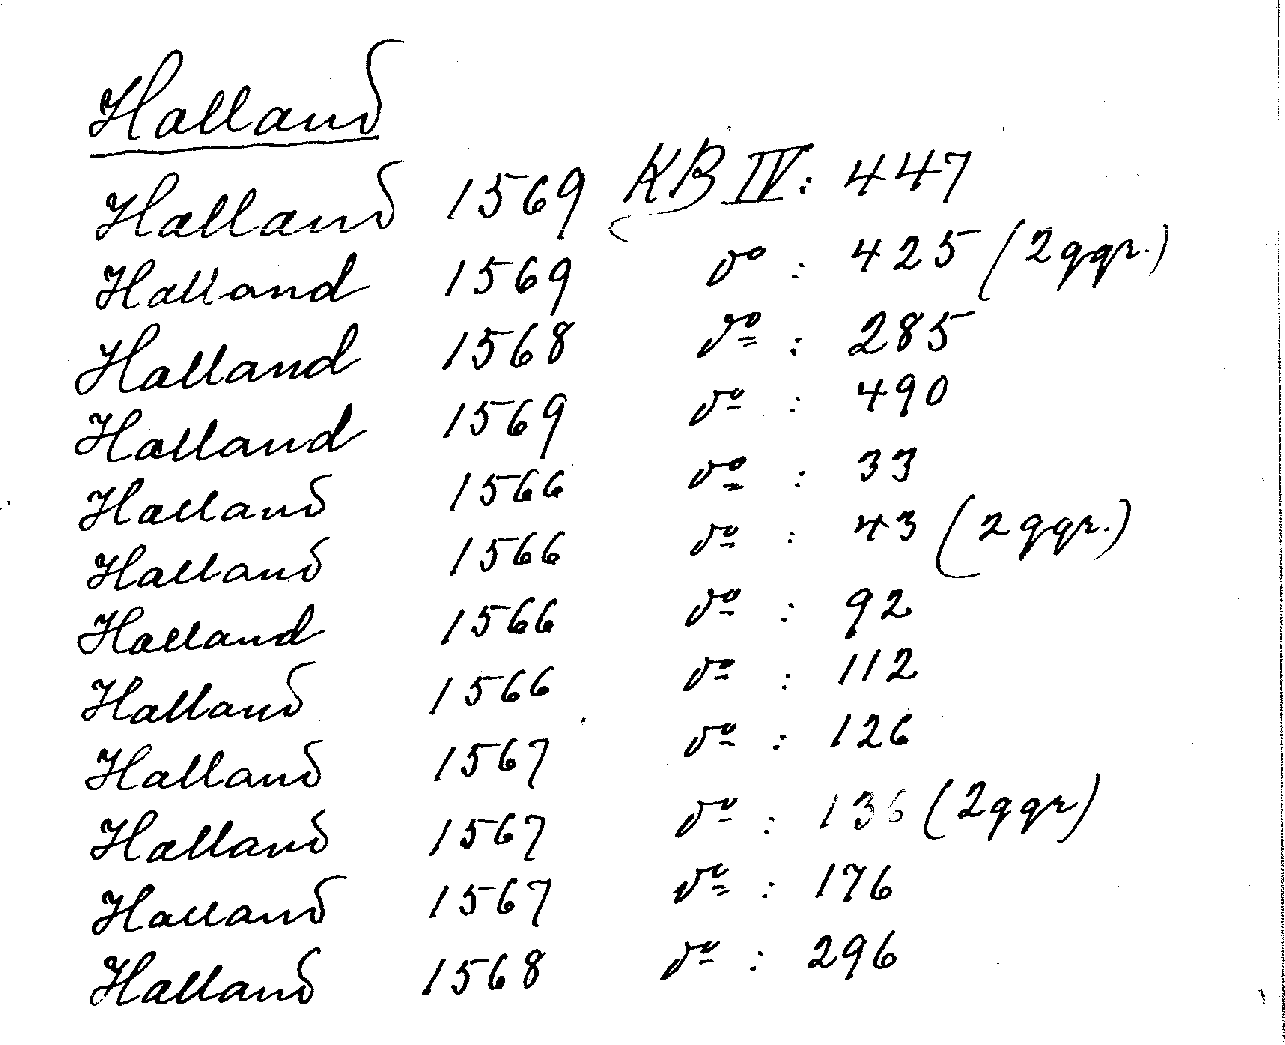 Halland
Halland 1569 KB IV: 447
Halland 1569 do : 425 (2 ggr.)
Halland 1568 do : 285
Halland 1569 do : 490
Halland 1566 do : 33
Halland 1566 do : 43 (2 ggr.)
Halland 1566 do : 92
Halland 1566 do : 112
Halland 1567 do : 126
Halland 1567 do : 136 (2 ggr)
Halland 1567 do : 176
Halland 1568 do : 296